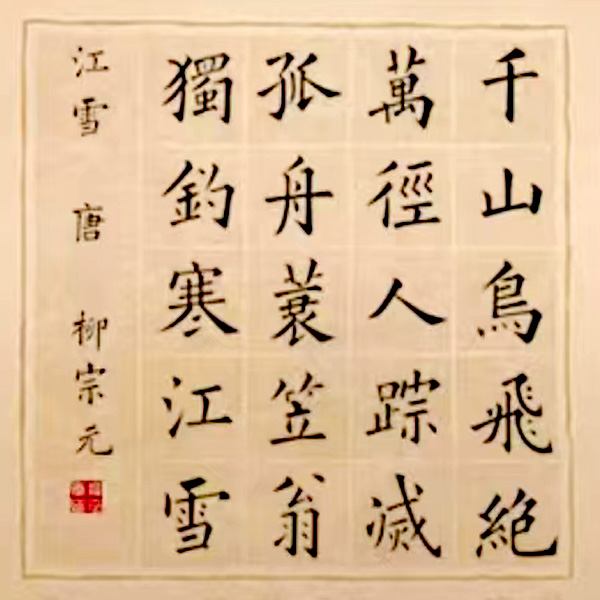 千山鳥飛絕
萬徑人踪滅
孤舟蓑笠翁
獨釣寒江雪
江雪 唐 柳宗元